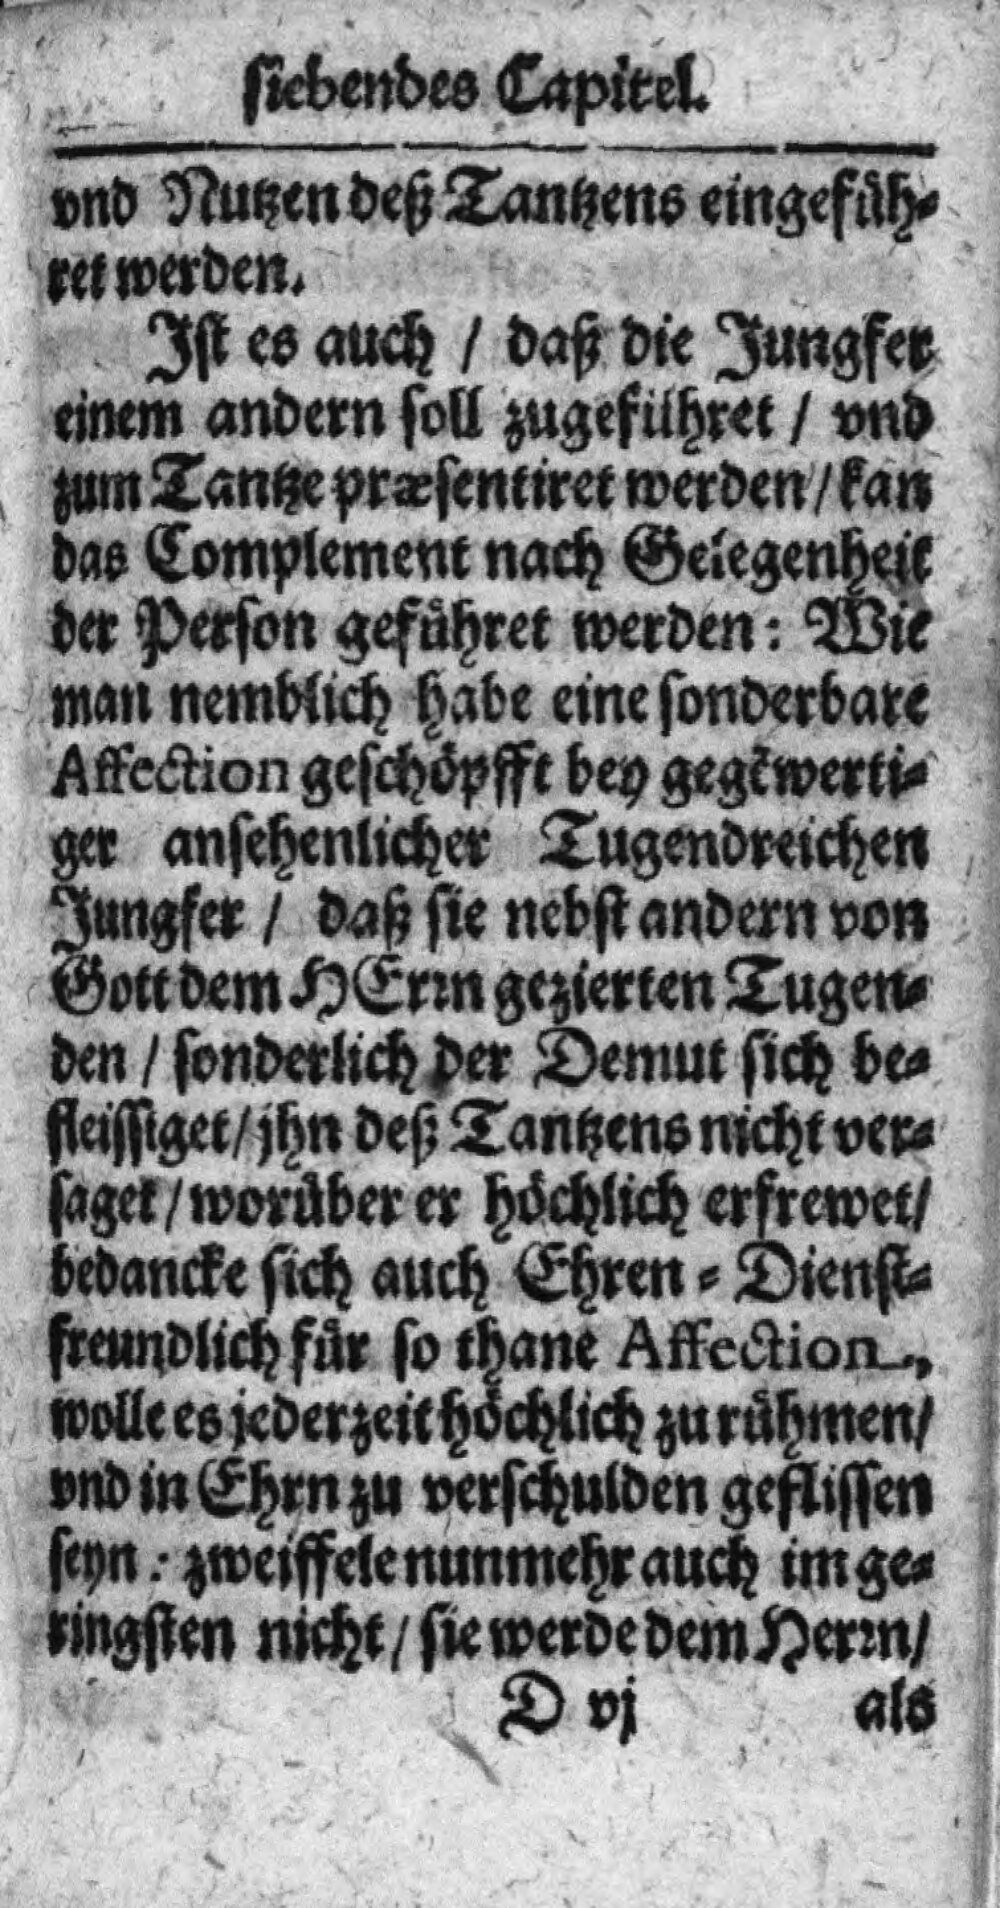 siebendes Capitel.
vnd Nutzen deß Tantzens eingefüh-
ret werden.
Ist es auch / daß die Jungfer
einem andern soll zugeführet / vnd
zum Tantze præsentiret werden / kan
das Complement nach Gelegenheit
der Person geführet werden: Wie
man nemblich habe eine sonderbare
Affection geschöpfft bey gegẽwerti-
ger ansehenlicher Tugendreichen
Jungfer / daß sie nebst andern von
Gott dem HErꝛn gezierten Tugen-
den / sonderlich der Demut sich be-
fleissiget / jhn deß Tantzens nicht ver-
saget / worüber er höchlich erfrewet /
bedancke sich auch Ehren-Dienst-
freundlich für so thane Affection,
wolle es jederzeit höchlich zu rühmen /
vnd in Ehrn zu verschulden geflissen
seyn: zweiffele nunmehr auch im ge-
ringsten nicht / sie werde dem Herꝛn /
D vj als